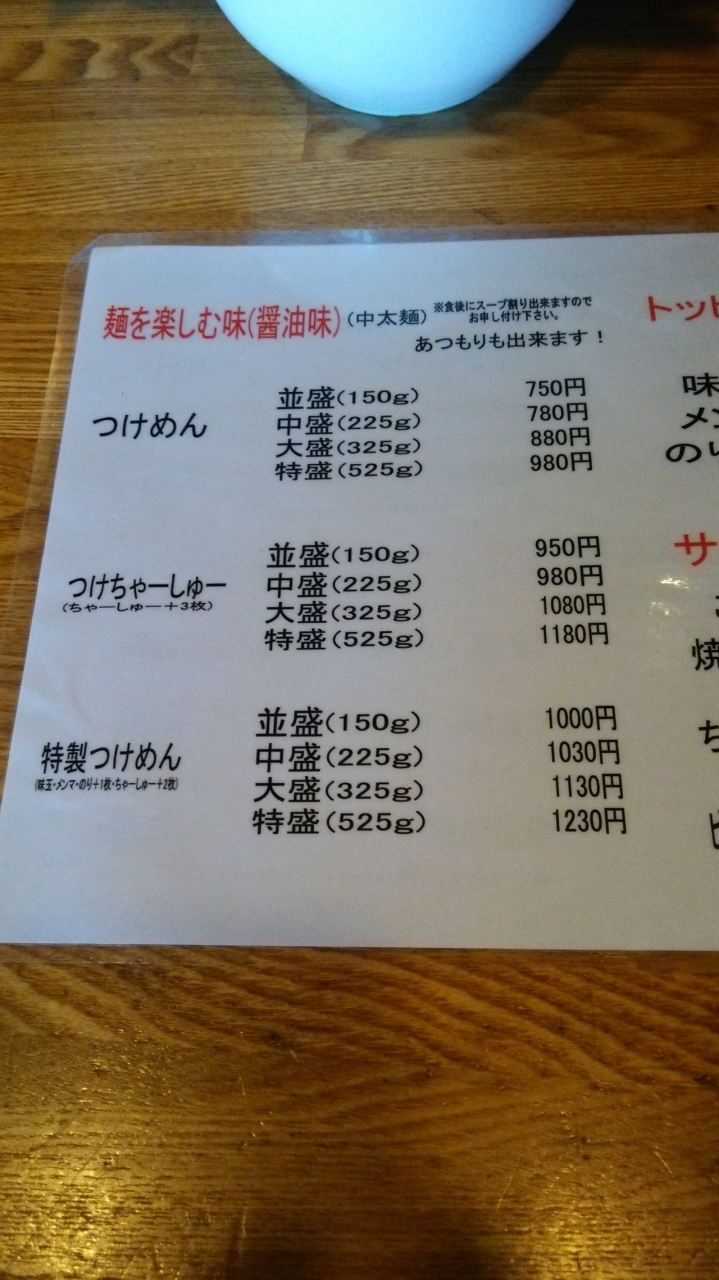 麺を楽しむ味(醤油味)(中太麺) ※食後にスープ割り出来ますので
お申し付け下さい。
あつもりも出来ます！
つけめん
並盛(150g) 750円
中盛(225g) 780円
大盛(325g) 880円
特盛(525g) 980円
つけちゃーしゅー
(ちゃーしゅー＋3枚)
並盛(150g) 950円
中盛(225g) 980円
大盛(325g) 1080円
特盛(525g) 1180円
特製つけめん
(味玉・メンマ・のり＋1枚・ちゃーしゅー＋2枚)
並盛(150g) 1000円
中盛(225g) 1030円
大盛(325g) 1130円
特盛(525g) 1230円
トッ
味
メ
のり
サ
焼
ち